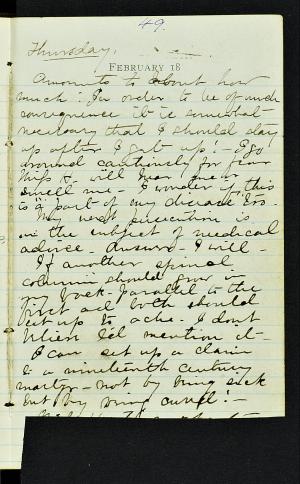 49.
Thursday,
FEBRUARY 18
Amounts to about how
much! In order to be of much
consequence it is somewhat
necessary that I should stay
up after I get up! - I go
around cautiously for fear
Miss will hear or
smell me - I wonder if this
is a part of my disease too.
My next persecution is
in the subject of medical
advice. I will -
If another spinal
column should grow in
my back - parallel to the
first and both should
set up to ache. I don't
b'lieve I'd mention it -
I can set up a claim
to a nineteenth century
martyr - not by being sick
but by being cured! -